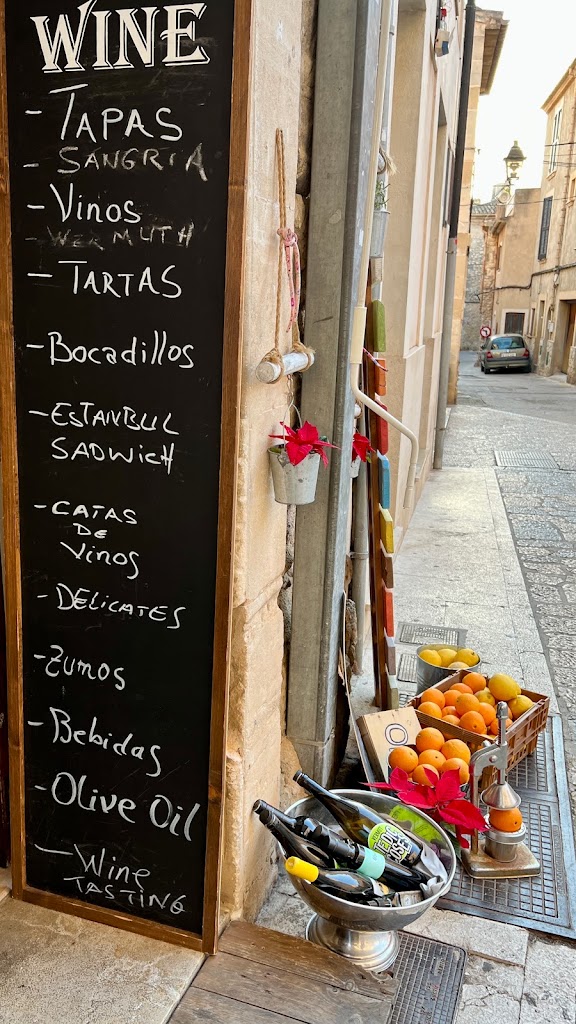 WINE
- TAPAS
- SANGRIA
- Vinos
- WERMUTH
- TARTAS
- Bocadillos
- ESTANBUL
SADWICH
- CATAS
DE
Vinos
- DELICATES
- Zumos
- Bebidas
- Olive Oil
- Wine
TASTING